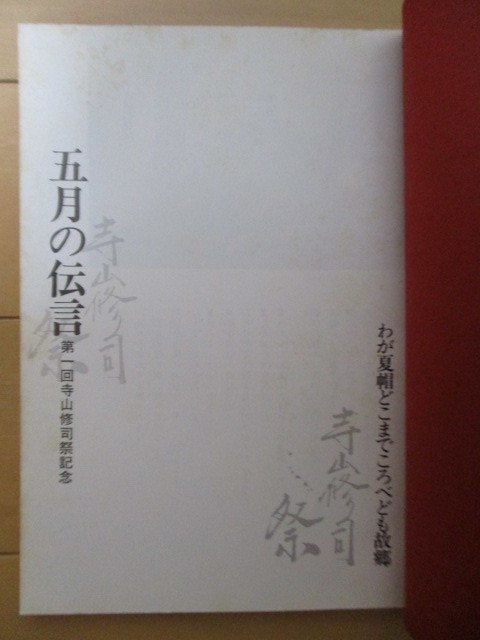 わが夏帽どこまでころべども故郷
寺山修司
祭
五月の伝言
第一回寺山修司祭記念
寺山修司
祭